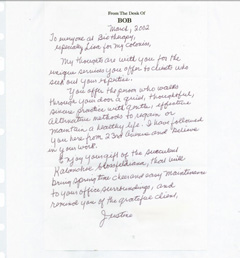 From The Desk Of
BOB
March, 2002
To everyone at Biotherapy,
especially Lina for my colonics,
My thoughts are with you for the
unique services you offer to clients who
seek out your expertise.
You offer the person who walks
through your door a quiet, thoughtful,
sincere practice with gentle, effective
alternative methods to regain or
maintain a healthy life. I have followed
you here from 22nd Avenue and believe
in your work.
Enjoy your gift of the succulent
Kalanchoe blossfeldiana, that will
bring Spring time cheer and easy maintenance
to your office surroundings, and
remind you of the grateful client,